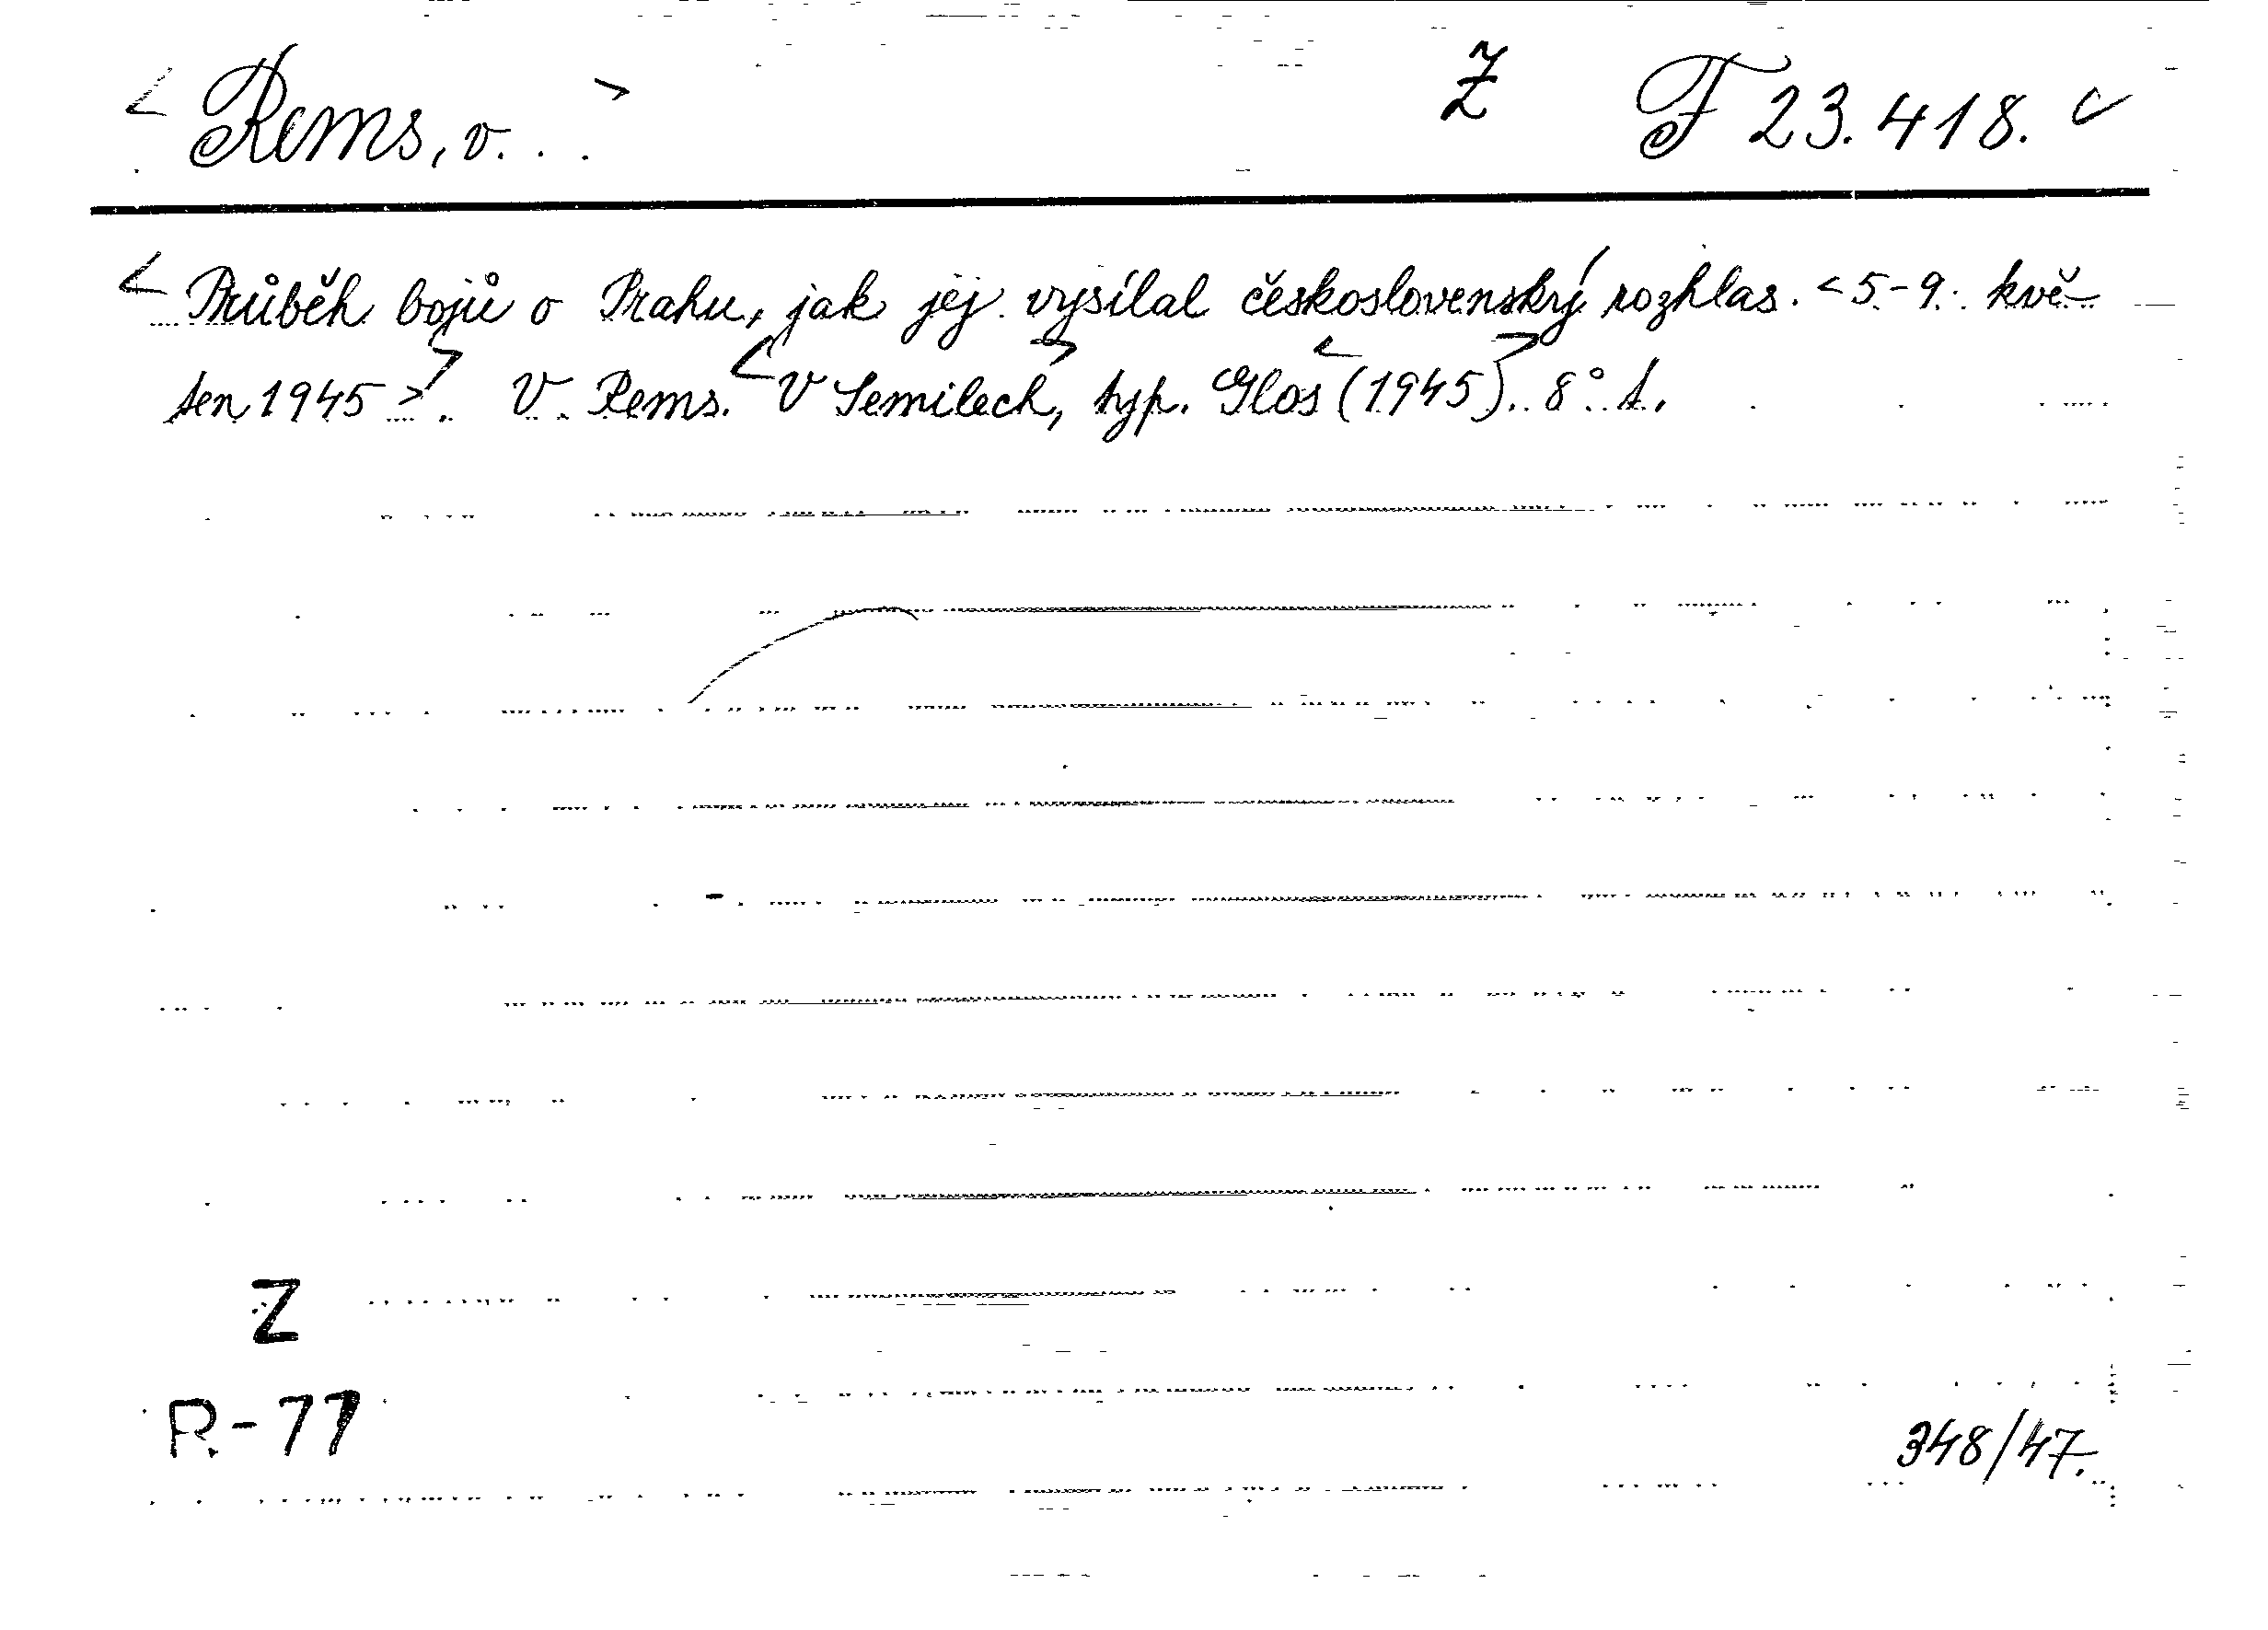 < Rems, v. . . > Z F 23.418. c
< Průběh bojů o Prahu, jak jej vysílal československý rozhlas. < 5.-9. kvě-
ten 1945 >>. V. Rems. < V Semilech, > typ. < Glos (1945) >. 8° t.
Z
R-77
348/47.